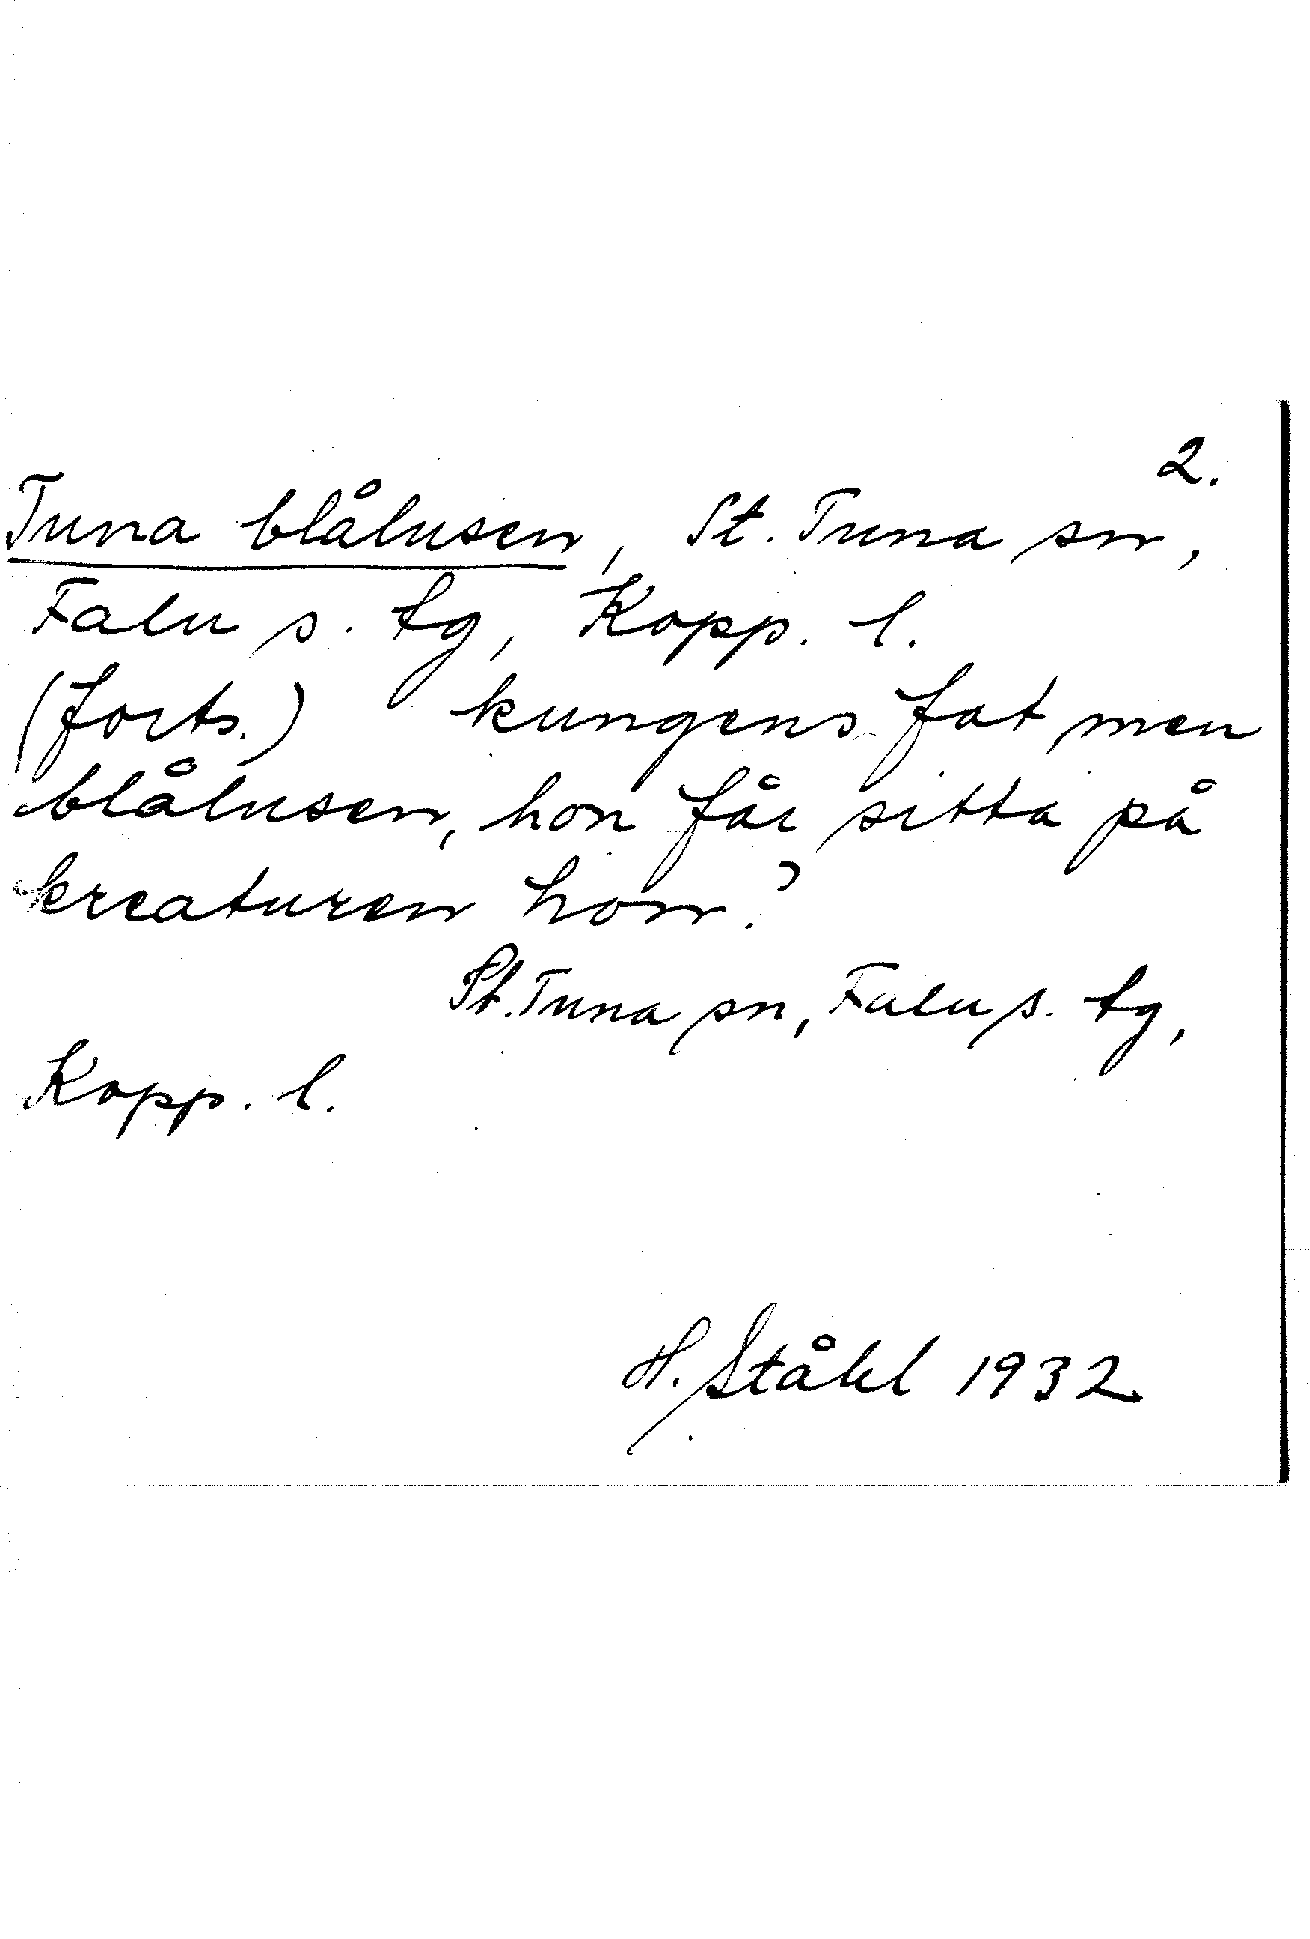 2.
Tuna blålusen, St. Tuna sn,
Falu s. tg, Kopp. l.
(forts.) kungens fat men
blålusen, hon får sitta på
kreaturen hon.'
St. Tuna sn, Falu s. tg,
Kopp. l.
H. Ståhl 1932